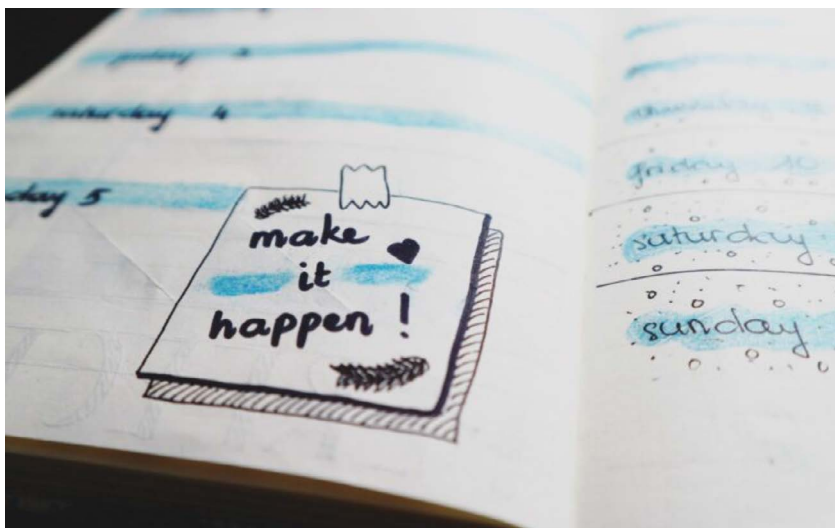 saturday 4
day 5
make
it
happen!
friday
saturday
sunday